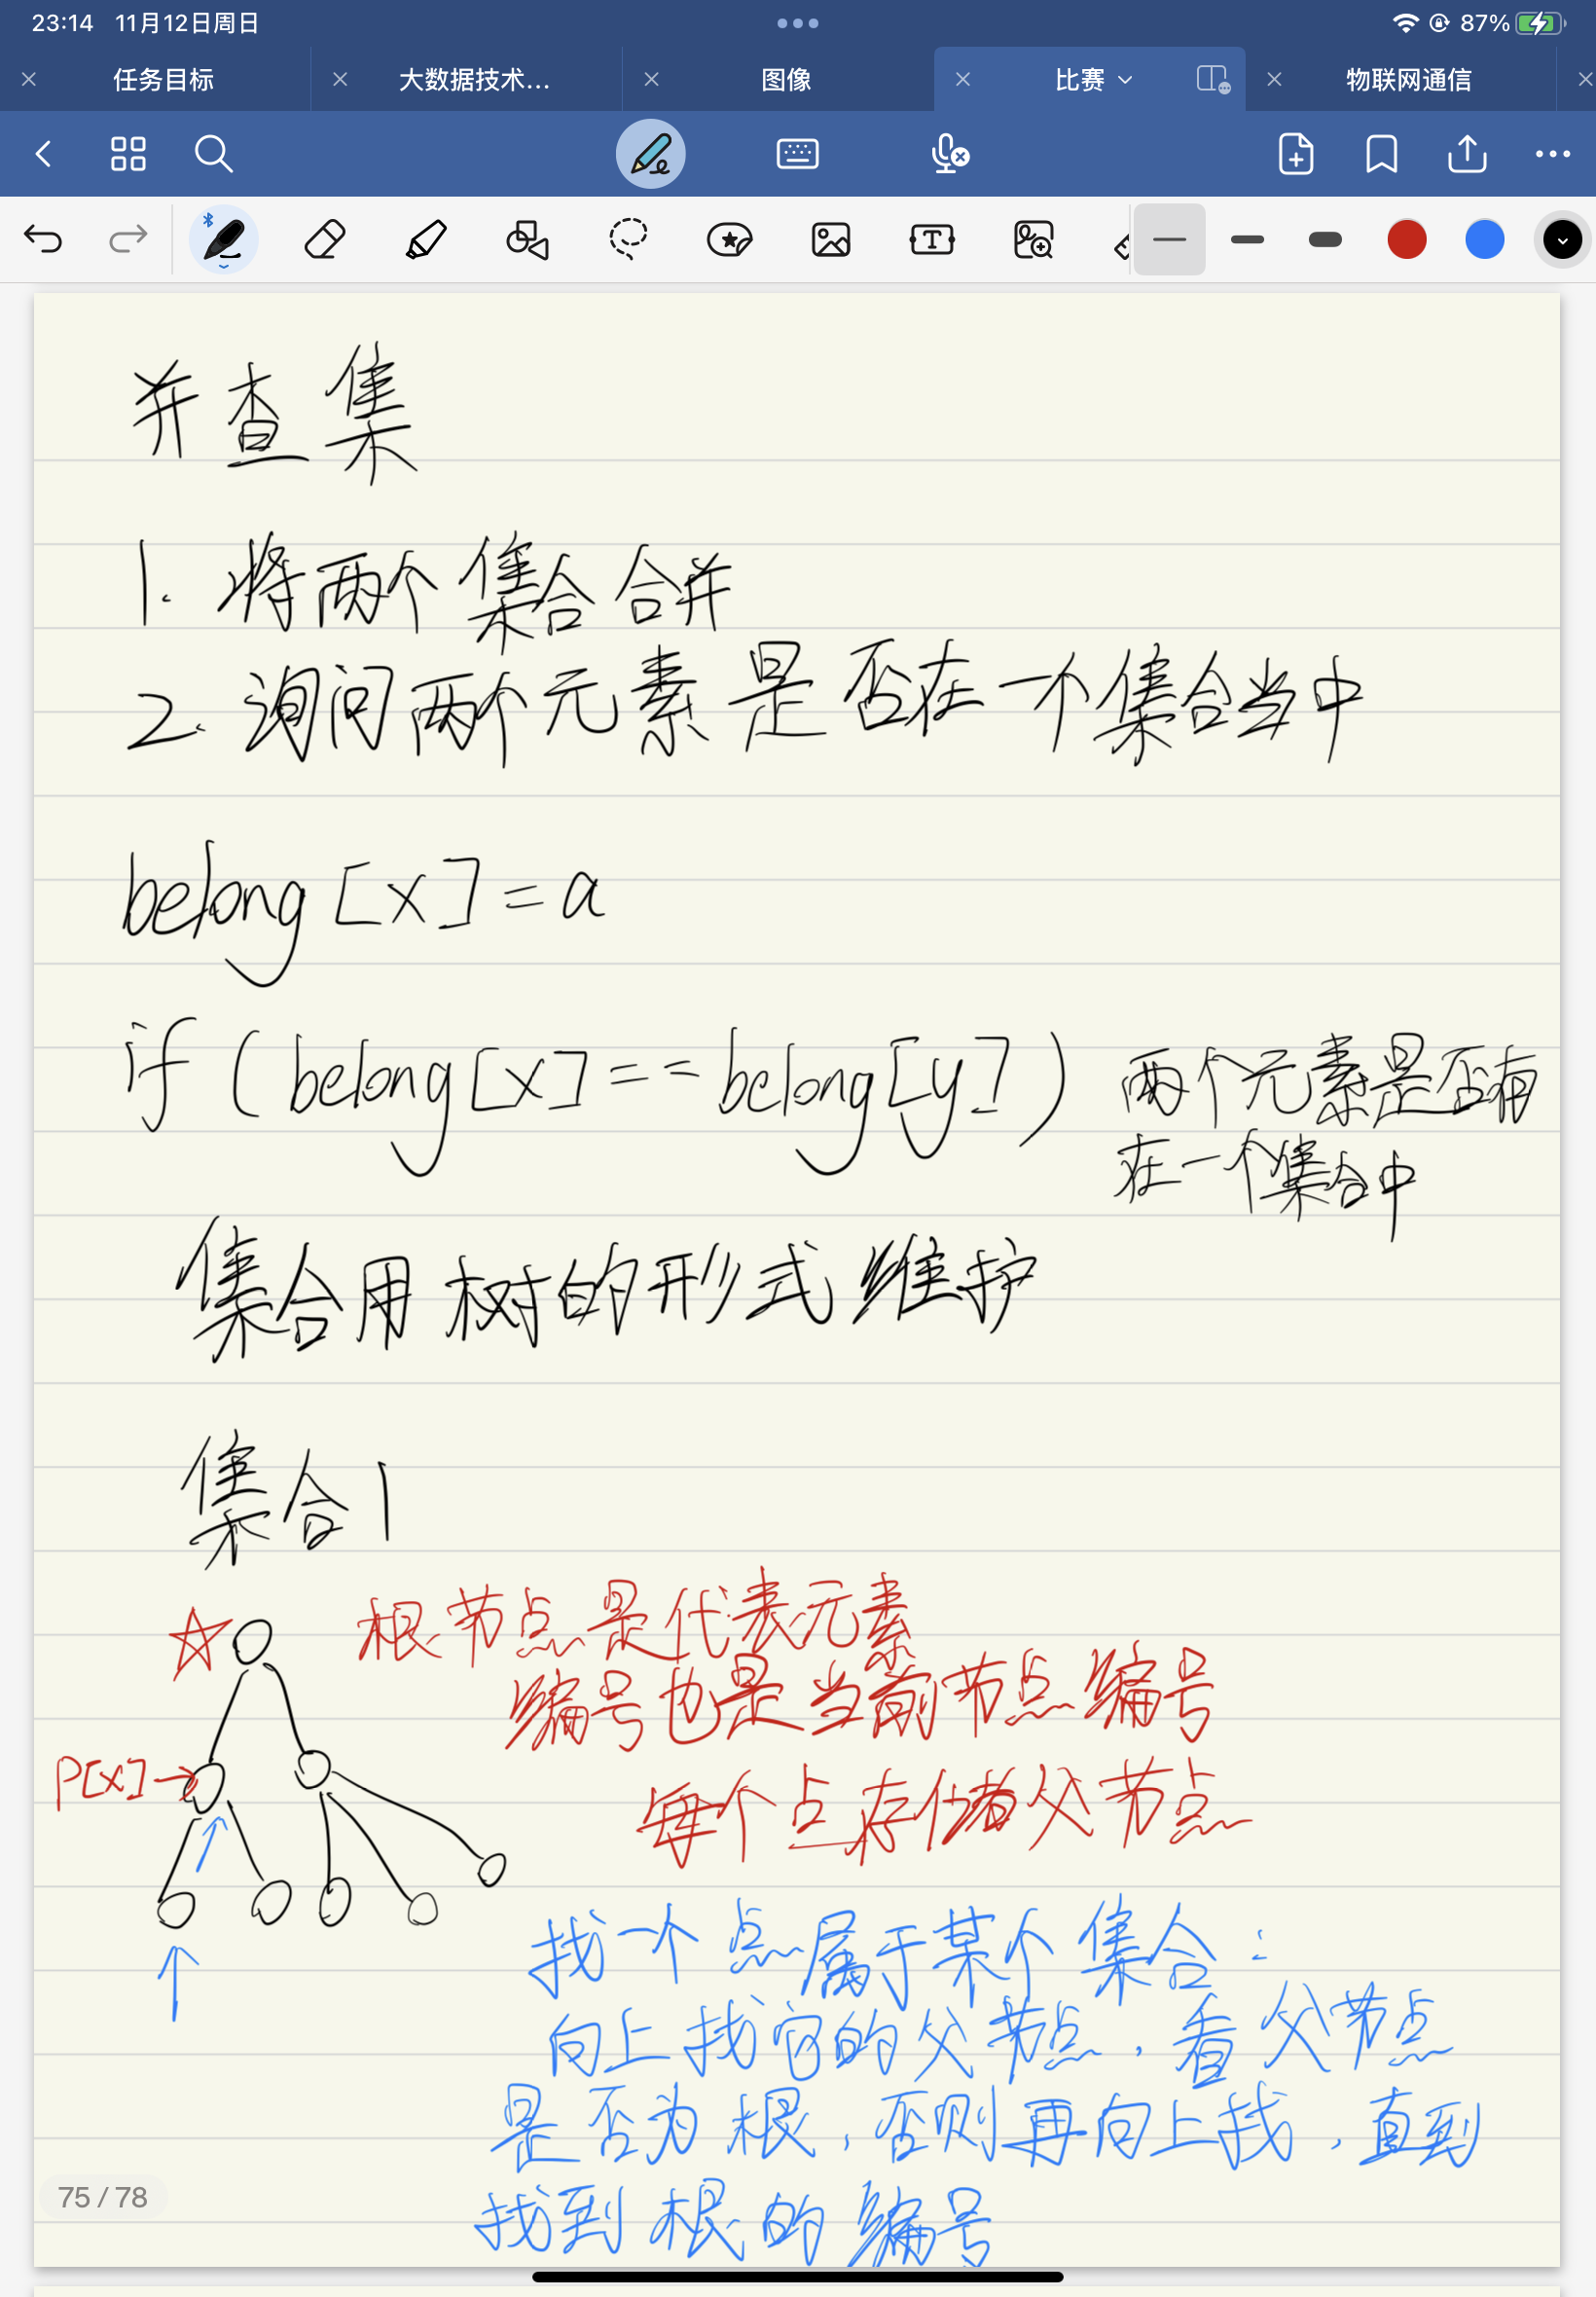 23:14 11月12日周日
87%
任务目标
大数据技术...
图像
比赛
物联网通信
并查集
1. 将两个集合合并
2. 询问两个元素是否在一个集合当中
belong[x]=a
if(belong[x]==belong[y]) 两个元素是否有
在一个集合中
集合用树的形式维护
集合1
根节点是代表元素
编号也是当前节点编号
P[x]
每个点存储着父节点
找一个点属于某个集合:
向上找它的父节点,看父节点
是否为根,否则再向上找,直到
找到根的编号
75/78